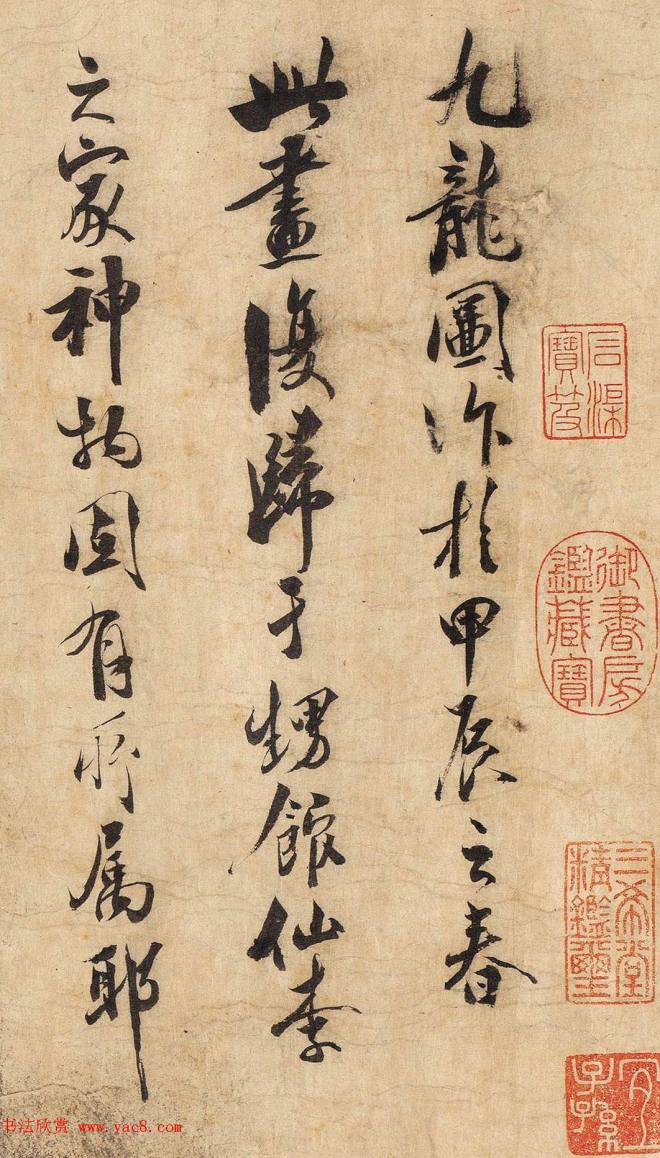 九龍圖作於甲辰之春
此畫復歸于甥館仙李
之家神物固有所属耶
石渠寶笈
御書房鑑藏寶
三希堂精鑑璽
宜子孫
书法欣赏 www.yac8.com